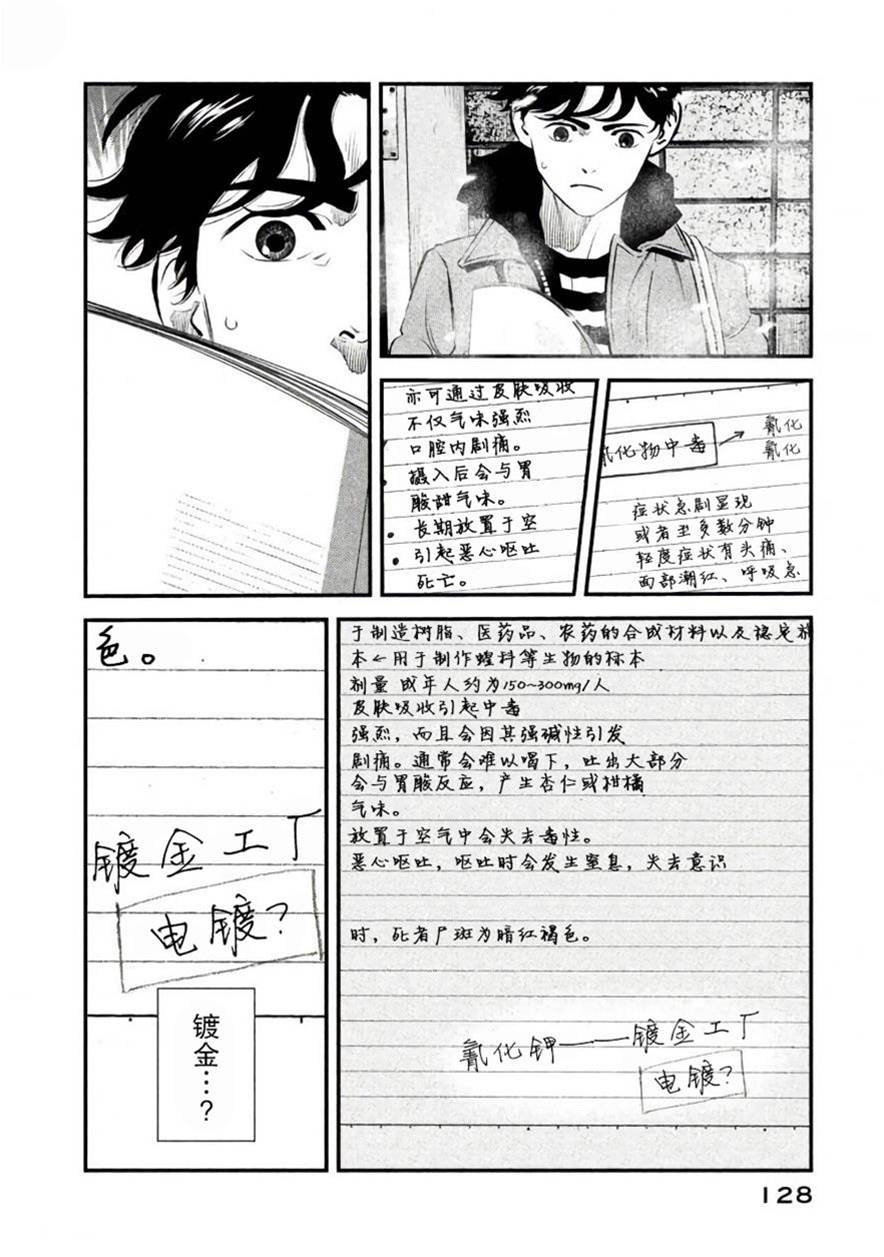 氰化
化物中毒
氰化
症状急剧显现
或者至多数分钟
轻度症状有头痛、
面部潮红、呼吸急
亦可通过皮肤吸收
不仅气味强烈
口腔内剧痛。
摄入后会与胃
酸甜气味。
长期放置于空
引起恶心呕吐
死亡。
于制造树脂、医药品、农药的合成材料以及稳定
本←用于制作蝗科等生物的标本
剂量 成年人约为150~300mg/人
皮肤吸收引起中毒
强烈，而且会因其强碱性引发
剧痛。通常会难以喝下，吐出大部分
会与胃酸反应，产生杏仁或柑橘
气味。
放置于空气中会失去毒性。
恶心呕吐，呕吐时会发生窒息，失去意识
时，死者尸斑为暗红褐色。
氰化钾——镀金工厂
电镀？
色。
镀金工厂
电镀？
镀金…？
128